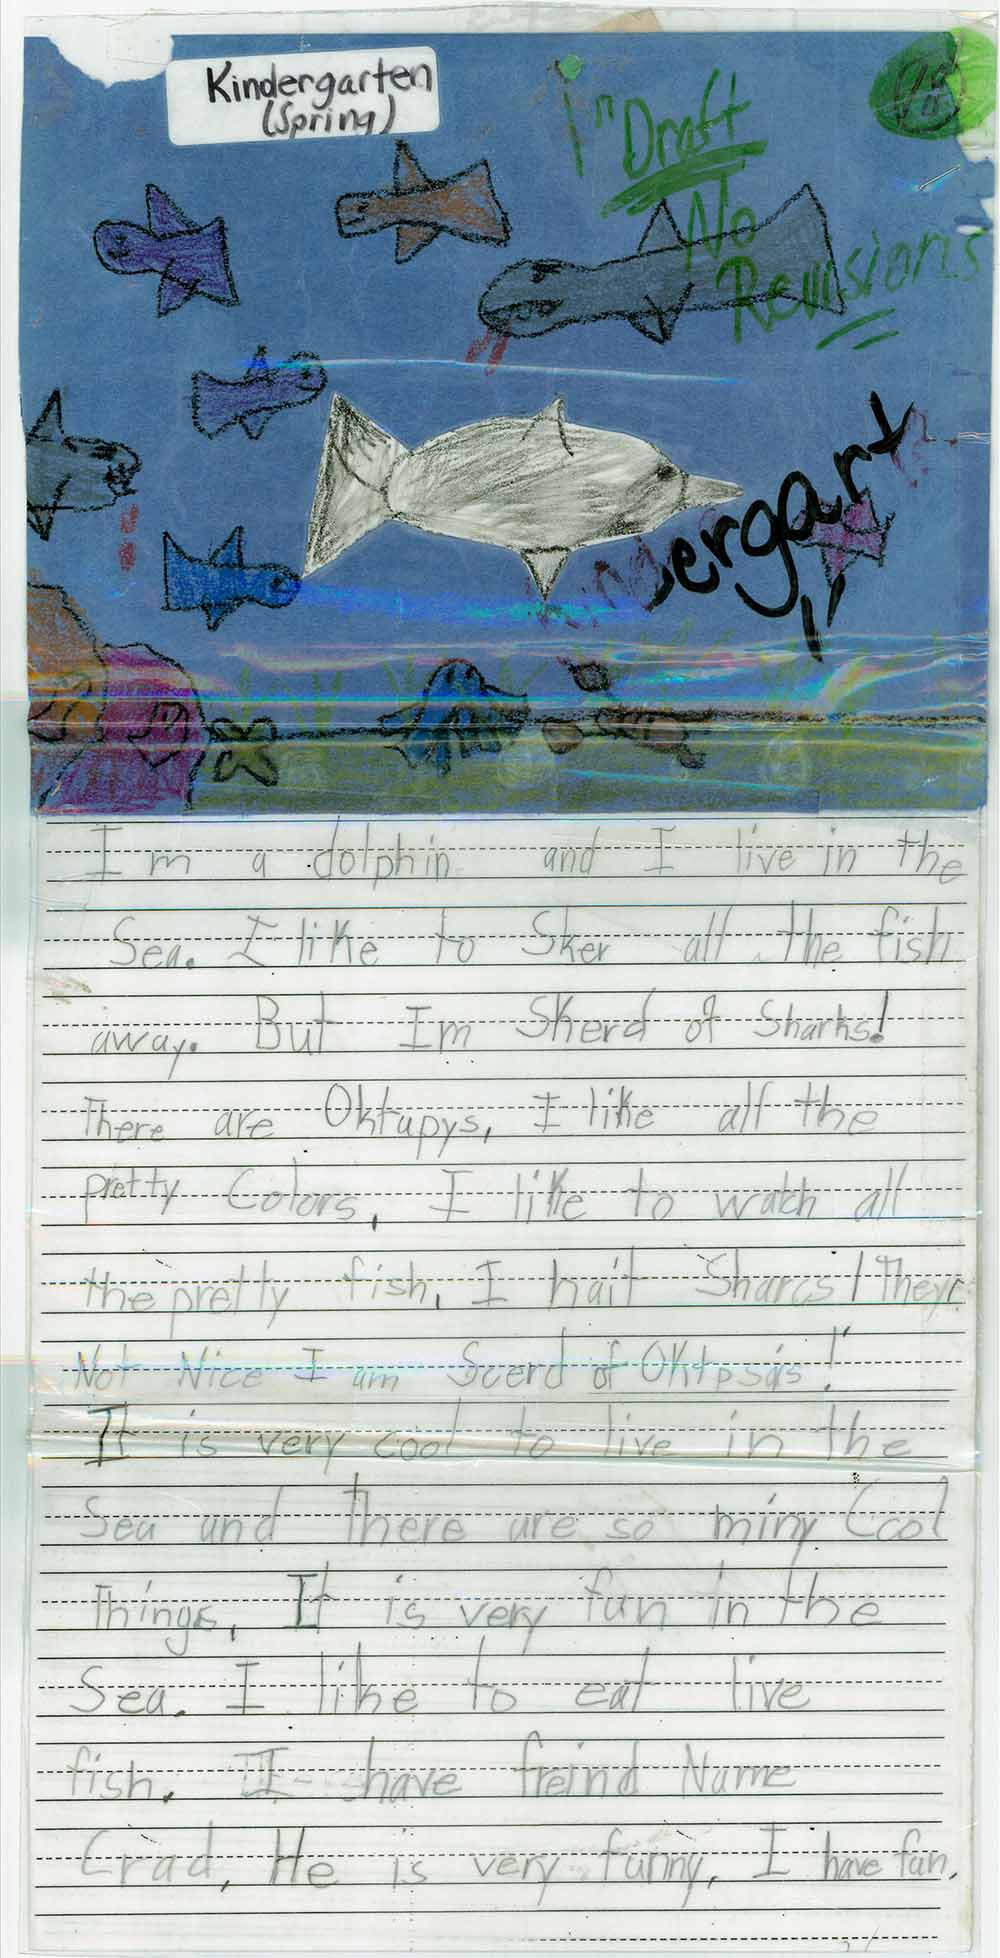 Kindergarten
(Spring)
"Draft
No
Revisions
ergart
Im a dolphin and I live in the
Sea. I like to Sker all the fish
away. But Im Skerd of Sharks!
There are Oktupys, I like all the
pretty Colors, I like to watch all
the pretty fish, I hait Sharcs! Theyr
Not Nice I am Scerd of Oktpsas!
It is very cool to live in the
Sea and there are so miny Cool
Things, It is very fun in the
Sea. I like to eat live
fish. I have freind Name
Crad, He is very funny, I have fun.